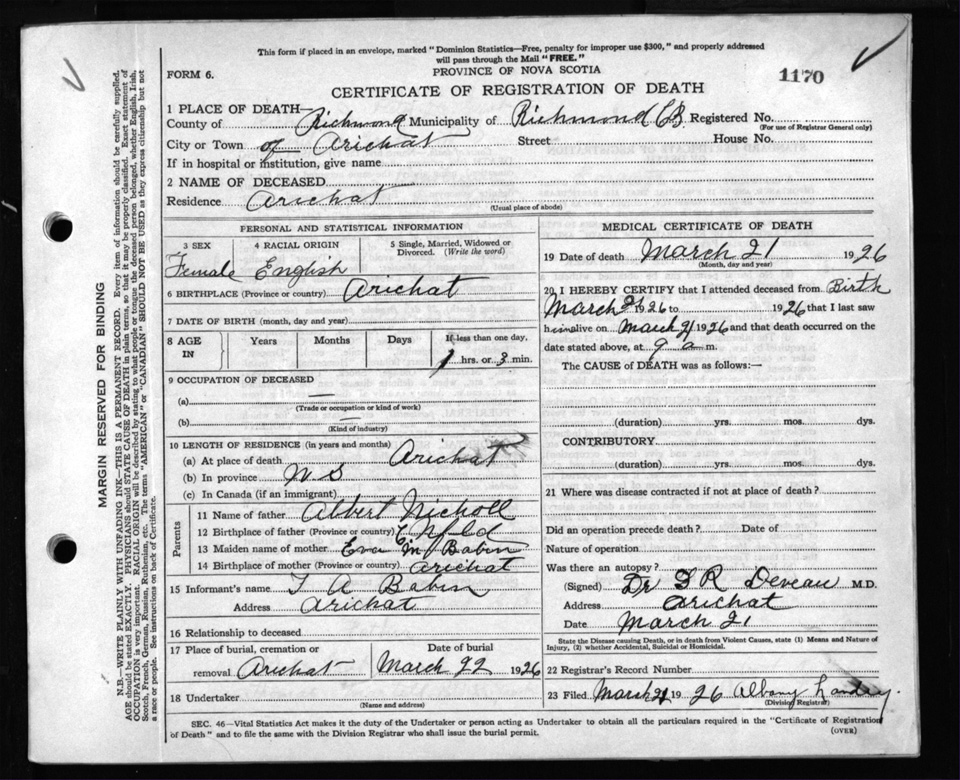 This form if placed in an envelope, marked "Dominion Statistics—Free, penalty for improper use $300," and properly addressed
will pass through the Mail "FREE."
FORM 6.
PROVINCE OF NOVA SCOTIA
1170
CERTIFICATE OF REGISTRATION OF DEATH
1 PLACE OF DEATH—
County of Richmond Municipality of Richmond CB Registered No.
(For use of Registrar General only)
City or Town of Arichat Street House No.
If in hospital or institution, give name
2 NAME OF DECEASED
Residence Arichat
(Usual place of abode)
PERSONAL AND STATISTICAL INFORMATION
3 SEX 4 RACIAL ORIGIN 5 Single, Married, Widowed or Divorced. (Write the word)
Female English
6 BIRTHPLACE (Province or country) Arichat
7 DATE OF BIRTH (month, day and year)
8 AGE IN Years Months Days If less than one day,
1 hrs. or 3 min.
9 OCCUPATION OF DECEASED
(a) —
(Trade or occupation or kind of work)
(b) —
(Kind of industry)
10 LENGTH OF RESIDENCE (in years and months)
(a) At place of death Arichat
(b) In province N S
(c) In Canada (if an immigrant)
Parents
11 Name of father Albert Nicholl
12 Birthplace of father (Province or country) Nfld
13 Maiden name of mother Eva M Babin
14 Birthplace of mother (Province or country) Arichat
15 Informant's name T A Babin
Address Arichat
16 Relationship to deceased
17 Place of burial, cremation or Date of burial
removal Arichat March 22 1926
18 Undertaker
(Name and address)
MEDICAL CERTIFICATE OF DEATH
19 Date of death March 21 1926
(Month, day and year)
20 I HEREBY CERTIFY that I attended deceased from Birth
March 21 1926 to 1926 that I last saw
h alive on March 21 1926 and that death occurred on
date stated above, at 9 a m.
The CAUSE of DEATH was as follows:—
(duration) yrs. mos. dys.
CONTRIBUTORY
(duration) yrs. mos. dys.
21 Where was disease contracted if not at place of death?
Did an operation precede death? Date of
Nature of operation
Was there an autopsy?
(Signed) Dr R Deveau M.D.
Address Arichat
Date March 21
State the Disease causing Death, or in death from Violent Causes, state (1) Means and Nature of
Injury, (2) whether Accidental, Suicidal or Homicidal.
22 Registrar's Record Number
23 Filed March 21 1926 Albany Landry.
(Division Registrar)
SEC. 46—Vital Statistics Act makes it the duty of the Undertaker or person acting as Undertaker to obtain all the particulars required in the "Certificate of Registration
of Death" and to file the same with the Division Registrar who shall issue the burial permit.
(OVER)
MARGIN RESERVED FOR BINDING
N.B.—WRITE PLAINLY WITH UNFADING INK—THIS IS A PERMANENT RECORD. Every item of information should be carefully supplied.
AGE should be stated EXACTLY. PHYSICIANS should STATE CAUSE OF DEATH in plain terms, so that it may be properly classified. Exact statement of
OCCUPATION is very important. RACIAL ORIGIN will be described by stating to what people or tongue the deceased person belonged, whether English, Irish,
Scotch, French, German, Russian, Ruthenian, etc. The terms "AMERICAN" or "CANADIAN" SHOULD NOT BE USED as they express citizenship but not
a race or people. See instructions on back of Certificate.